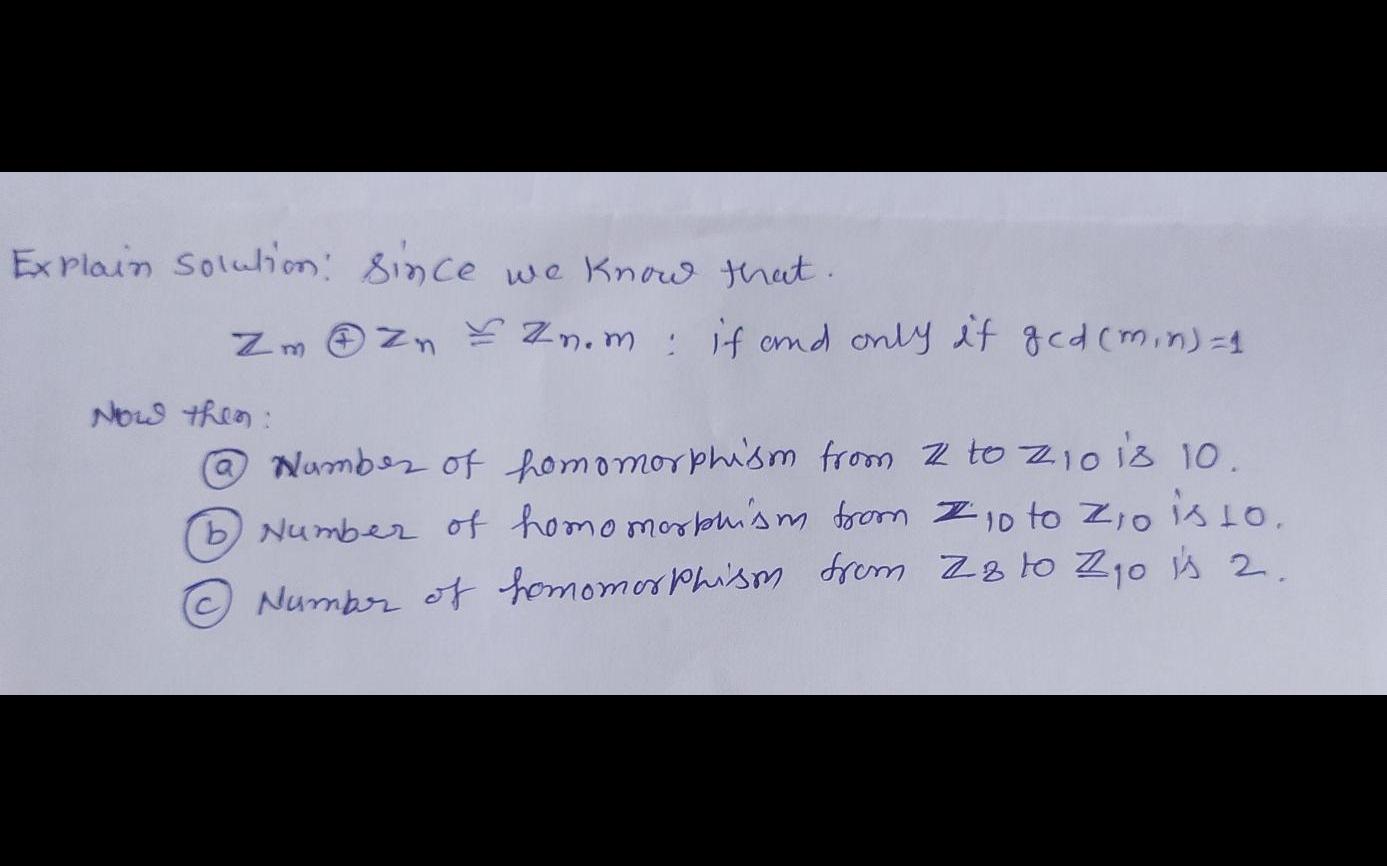 Explain Solution: Since we know that.
Zm ⊕ Zn ≅ Zn.m : if and only if gcd(m,n)=1
Now then:
ⓐ Number of homomorphism from Z to Z10 is 10.
ⓑ Number of homomorphism from Z10 to Z10 is 10.
ⓒ Number of homomorphism from Z8 to Z10 is 2.